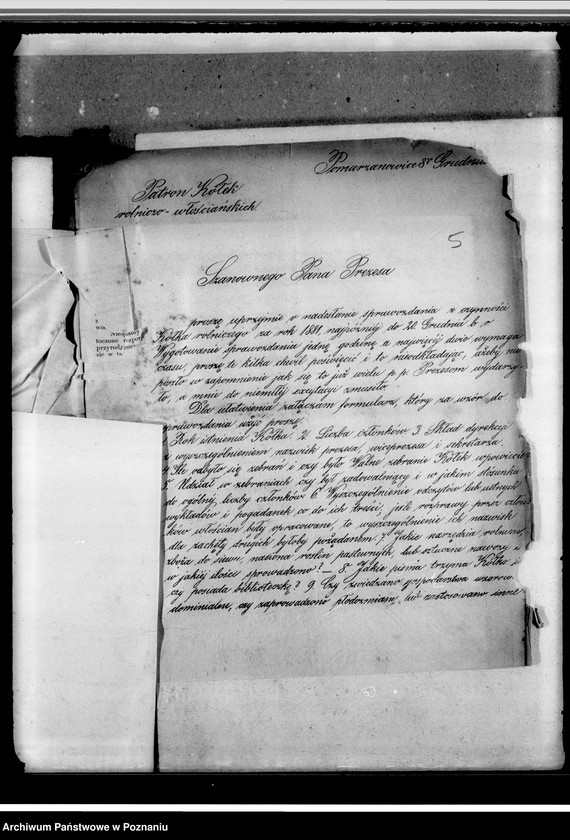 Pomarzanowice 8º Grudnia
Patron Kółek
rolniczo-włościańskich
5
Szanownego Pana Prezesa
proszę uprzejmie o nadesłanie sprawozdania z czynności
Kółka rolniczego za rok 1881, najpóźniej do 20 Grudnia b. r.
Wygotowanie sprawozdania jednę godzinę a najwięcej dwie wymaga
czasu, proszę te kilka chwil poświęcić i to nieodkładając, iżeby nie
poszło w zapomnienie jak się to już wielu p.p. Prezesom wydarzy-
ło, a mnie do niemiłej excytacyi zmusiło.
Dla ułatwienia załączam formularz, który za wzór do
sprawozdania użyć proszę:
Rok istnienia Kółka. 2. Liczba członków 3. Skład dyrekcyi
z wyszczególnieniem nazwisk prezesa, wiceprezesa i sekretarza
4. Ile odbyło się zebrań i czy było Walne zebranie Kółek w powiecie
5. Udział w zebraniach czy był zadowalniający i w jakim stosunku
do ogólnej liczby członków 6. Wyszczególnienie odczytów lub ustnych
wykładów i pogadanek co do ich treści, jeśli rozprawy przez człon-
ków włościan były opracowane, to wyszczególnienie ich nazwisk
dla zachęty drugich byłoby pożądanem. 7. Jakie narzędzia rolnicze,
zboża do siewu, nasiona roślin pastewnych lub sztuczne nawozy i
w jakiej ilości sprowadzono? — 8. Jakie pisma trzyma Kółko i
czy posiada biblioteczkę? 9. Czy zwiedzano gospodarstwa wzorowe
dominialne, czy zaprowadzono płodozmian, lub zastosowano inne
wia.
zemijamy
toczone rozpor
przyrodzone
nie w ta
Archiwum Państwowe w Poznaniu